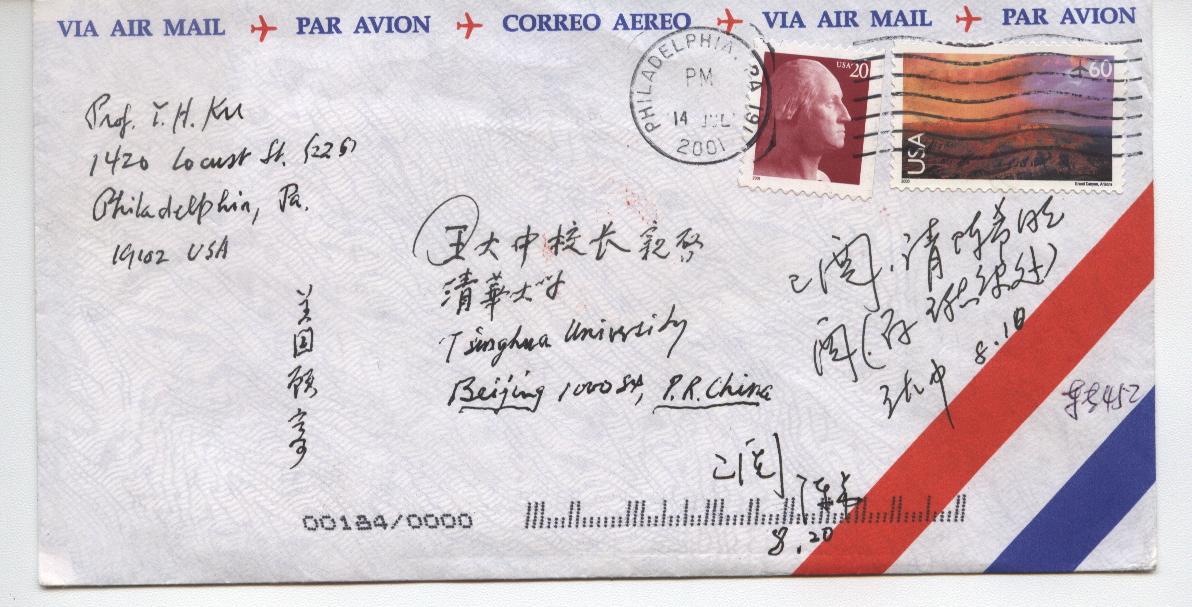 VIA AIR MAIL PAR AVION CORREO AEREO VIA AIR MAIL PAR AVION
Prof. Y. H. Ku
1420 Locust St. (22G)
Philadelphia, Pa.
19102 USA
PHILADELPHIA, PA 191
PM
14 JUL
2001
USA 20
60
USA
Grand Canyon, Arizona
王大中校长 親啓
清華大学
Tsinghua University
Beijing 100084, P.R. China
美国顾寄
已阅,请
阅
8.18
已阅
8.20
00184/0000